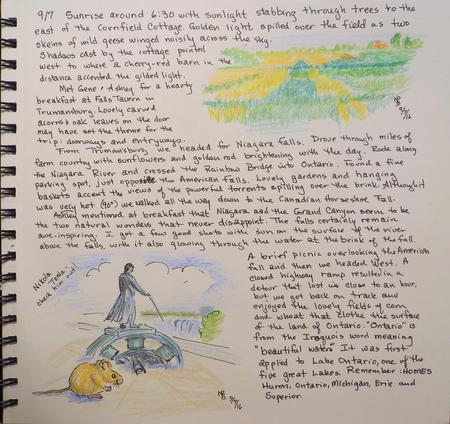 9/7 Sunrise around 6:30 with sunlight stabbing through trees to the
east of the Cornfield Cottage. Golden light spilled over the field as two
skeins of wild geese winged noisily across the sky.
Shadows cast by the cottage pointed
west to where a cherry-red barn in the
distance accented the gilded light.
Met Gene & Ashley for a hearty
breakfast at Falls Tavern in
Trumansburg. Lovely carved
acorns & oak leaves on the door
may have set the theme for the
trip: doorways and entryways.
From Trumansburg, we headed for Niagara Falls. Drove through miles of
farm country with sunflowers and goldenrod brightening with the day. Rode along
the Niagara River and crossed the Rainbow Bridge into Ontario. Found a fine
parking spot, just opposite the American Falls. Lovely gardens and hanging
baskets accent the views of the powerful torrents spilling over the brink. Although it
was very hot (90°) we walked all the way down to the Canadian Horseshoe Fall.
Ashley mentioned at breakfast that Niagara and the Grand Canyon seem to be
the two natural wonders that never disappoint. The falls certainly remain
awe-inspiring. I got a few good shots with sun on the surface of the river
above the falls, with it also glowing through the water at the brink of the fall.
A brief picnic overlooking the American
fall and then we headed West. A
closed highway ramp resulted in a
detour that lost us close to an hour,
but we got back on track and
enjoyed the lovely fields of corn
and wheat that clothe the surface
of the land of Ontario. "Ontario" is
from the Iroquois word meaning
"beautiful waters". It was first
applied to Lake Ontario, one of the
five great Lakes. Remember: HOMES
Huron, Ontario, Michigan, Erie and
Superior.
Nikola
Tesla -
check him out!
9/6/16
9/6/16